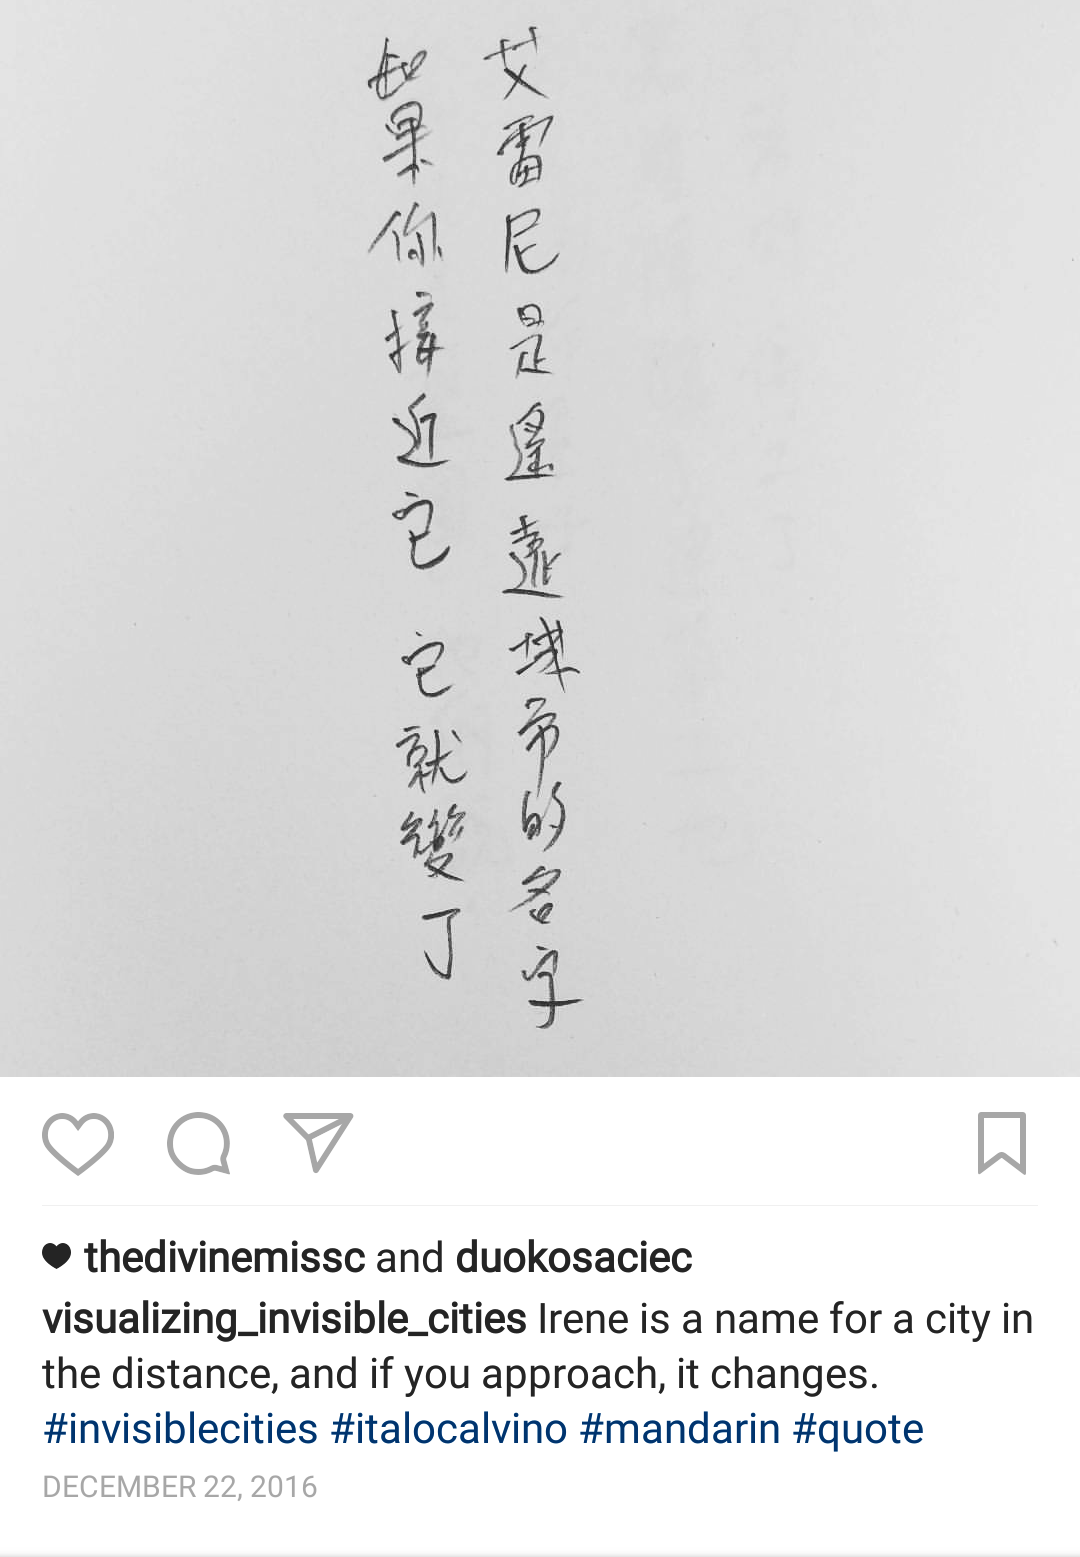 艾雷尼是遙遠城市的名字
如果你接近它 它就變了
thedivinemissc and duokosaciec
visualizing_invisible_cities Irene is a name for a city in
the distance, and if you approach, it changes.
#invisiblecities #italocalvino #mandarin #quote
DECEMBER 22, 2016